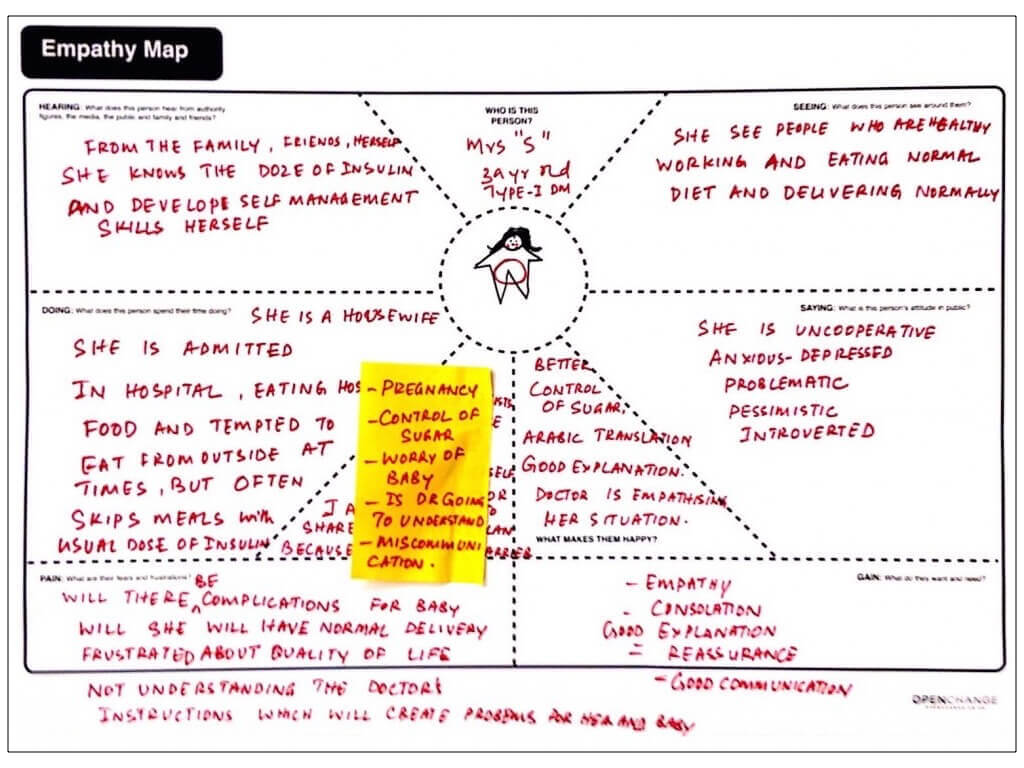 Empathy Map
HEARING: What does this person hear from authority
figures, the media, the public and family and friends?
FROM THE FAMILY, FRIENDS, HERSELF
SHE KNOWS THE DOZE OF INSULIN
AND DEVELOPE SELF MANAGEMENT
SKILLS HERSELF
WHO IS THIS
PERSON?
Mrs "S"
yr old
TYPE-I DM
SEEING: What does this person see around them?
SHE SEE PEOPLE WHO ARE HEALTHY
WORKING AND EATING NORMAL
DIET AND DELIVERING NORMALLY
DOING: What does this person spend their time doing?
SHE IS A HOUSEWIFE
SHE IS ADMITTED
IN HOSPITAL, EATING HOS
FOOD AND TEMPTED TO
EAT FROM OUTSIDE AT
TIMES, BUT OFTEN
SKIPS MEALS with
USUAL DOSE OF INSULIN
- PREGNANCY
- CONTROL OF
SUGAR
- WORRY OF
BABY
- IS DR GOING
TO UNDERSTAND
- MISCOMMUNI
CATION.
SHARE
BECAUSE
BETTER
CONTROL
OF SUGAR.
ARABIC TRANSLATION
GOOD EXPLANATION.
DOCTOR IS EMPATHISING
HER SITUATION.
WHAT MAKES THEM HAPPY?
SAYING: What is this person's attitude in public?
SHE IS UNCOOPERATIVE
ANXIOUS-DEPRESSED
PROBLEMATIC
PESSIMISTIC
INTROVERTED
PAIN: What are their fears and frustrations?
WILL THERE BE COMPLICATIONS FOR BABY
WILL SHE WILL HAVE NORMAL DELIVERY
FRUSTRATED ABOUT QUALITY OF LIFE
NOT UNDERSTANDING THE DOCTORS
INSTRUCTIONS WHICH WILL CREATE PROBLEMS FOR HER AND BABY
GAIN: What do they want and need?
- EMPATHY
- CONSOLATION
GOOD EXPLANATION
= REASSURANCE
- GOOD COMMUNICATION
OPENCHANGE